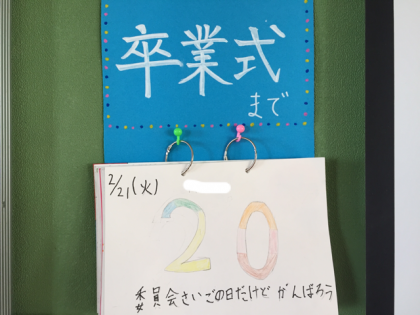 卒業式
まで
2/21(火)
20
委員会さいごの日だけど がんばろう